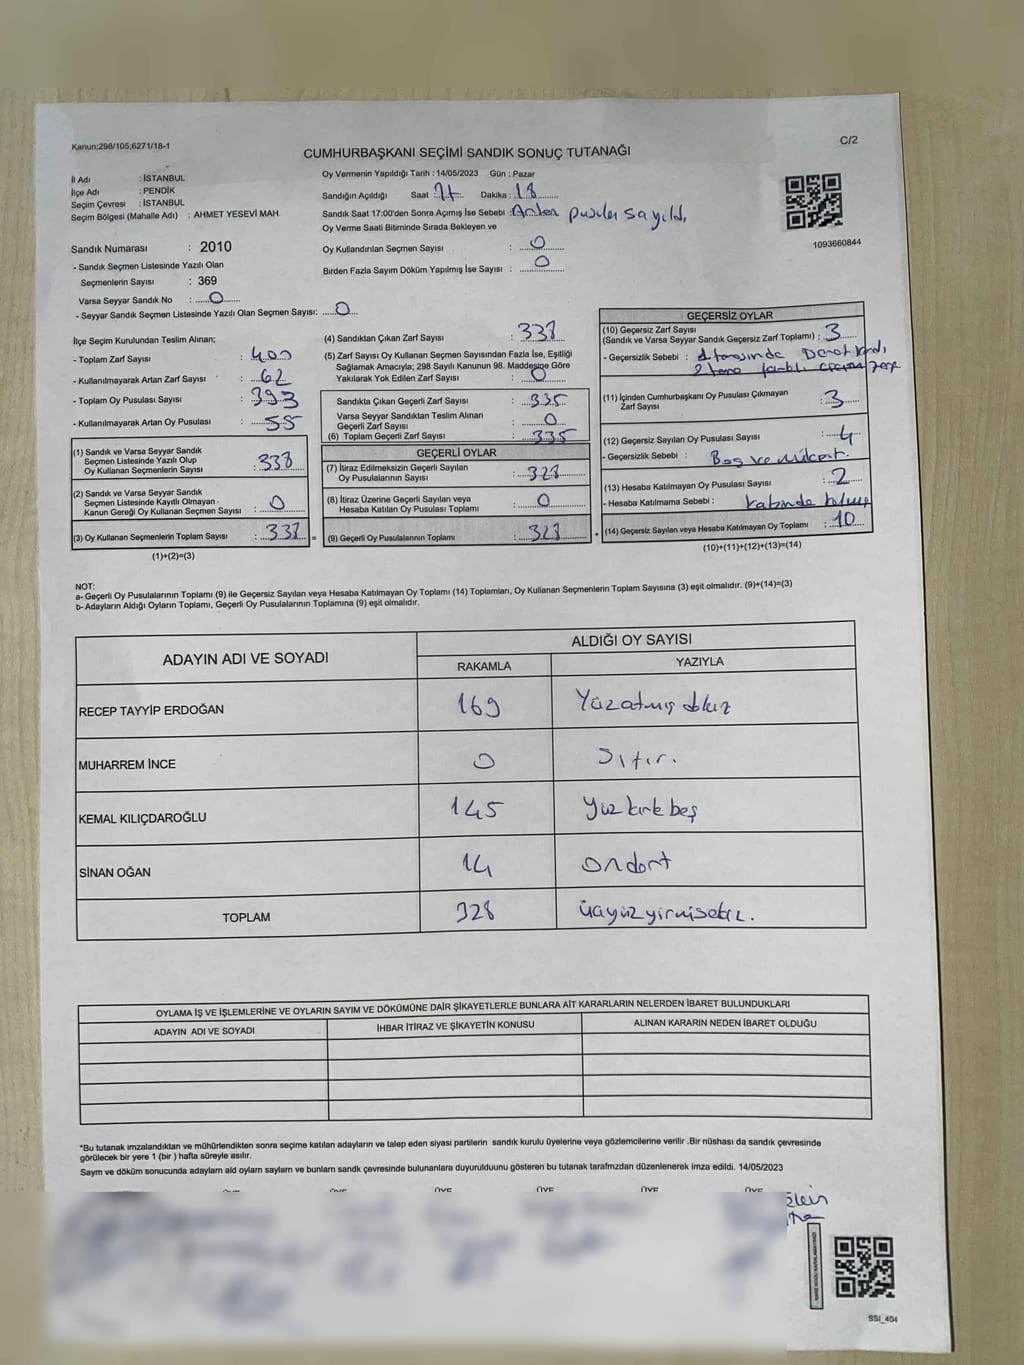 Kanun;298/105;6271/18-1
C/2
CUMHURBAŞKANI SEÇİMİ SANDIK SONUÇ TUTANAĞI
İl Adı : İSTANBUL
İlçe Adı : PENDİK
Seçim Çevresi : İSTANBUL
Seçim Bölgesi (Mahalle Adı) : AHMET YESEVİ MAH.
Oy Vermenin Yapıldığı Tarih : 14/05/2023 Gün : Pazar
Sandığın Açıldığı Saat : 17 Dakika : 18
Sandık Saat 17:00'den Sonra Açımış İse Sebebi : Artan pusula sayıldı,
Oy Verme Saati Bitiminde Sırada Bekleyen ve
Oy Kullandırılan Seçmen Sayısı : 0
Birden Fazla Sayım Döküm Yapılmış İse Sayısı : 0
1093660844
Sandık Numarası : 2010
- Sandık Seçmen Listesinde Yazılı Olan
Seçmenlerin Sayısı : 369
Varsa Seyyar Sandık No : 0
- Seyyar Sandık Seçmen Listesinde Yazılı Olan Seçmen Sayısı: 0
İlçe Seçim Kurulundan Teslim Alınan;
- Toplam Zarf Sayısı : 400
- Kullanılmayarak Artan Zarf Sayısı : 62
- Toplam Oy Pusulası Sayısı : 393
- Kullanılmayarak Artan Oy Pusulası : 55
(1) Sandık ve Varsa Seyyar Sandık
Seçmen Listesinde Yazılı Olup
Oy Kullanan Seçmenlerin Sayısı : 338
(2) Sandık ve Varsa Seyyar Sandık
Seçmen Listesinde Kayıtlı Olmayan -
Kanun Gereği Oy Kullanan Seçmen Sayısı : 0
(3) Oy Kullanan Seçmenlerin Toplam Sayısı : 338 =
(1)+(2)=(3)
(4) Sandıktan Çıkan Zarf Sayısı : 338
(5) Zarf Sayısı Oy Kullanan Seçmen Sayısından Fazla İse, Eşitliği
Sağlamak Amacıyla; 298 Sayılı Kanunun 98. Maddesine Göre
Yakılarak Yok Edilen Zarf Sayısı : 0
Sandıkta Çıkan Geçerli Zarf Sayısı : 335
Varsa Seyyar Sandıktan Teslim Alınan
Geçerli Zarf Sayısı : 0
(6) Toplam Geçerli Zarf Sayısı : 335
GEÇERLİ OYLAR
(7) İtiraz Edilmeksizin Geçerli Sayılan
Oy Pusulalarının Sayısı : 328
(8) İtiraz Üzerine Geçerli Sayılan veya
Hesaba Katılan Oy Pusulası Toplamı : 0
(9) Geçerli Oy Pusulalarının Toplamı : 328 +
GEÇERSİZ OYLAR
(10) Geçersiz Zarf Sayısı
(Sandık ve Varsa Seyyar Sandık Geçersiz Zarf Toplamı) : 3
- Geçersizlik Sebebi : 1 tanesinde
2 tane farklı zarf
(11) İçinden Cumhurbaşkanı Oy Pusulası Çıkmayan
Zarf Sayısı : 3
(12) Geçersiz Sayılan Oy Pusulası Sayısı : 4
- Geçersizlik Sebebi : Boş ve
(13) Hesaba Katılmayan Oy Pusulası Sayısı : 2
- Hesaba Katılmama Sebebi : kabinde
(14) Geçersiz Sayılan veya Hesaba Katılmayan Oy Toplamı : 10
(10)+(11)+(12)+(13)=(14)
NOT:
a- Geçerli Oy Pusulalarının Toplamı (9) ile Geçersiz Sayılan veya Hesaba Katılmayan Oy Toplamı (14) Toplamları, Oy Kullanan Seçmenlerin Toplam Sayısına (3) eşit olmalıdır. (9)+(14)=(3)
b- Adayların Aldığı Oyların Toplamı, Geçerli Oy Pusulalarının Toplamına (9) eşit olmalıdır.
ADAYIN ADI VE SOYADI
ALDIĞI OY SAYISI
RAKAMLA YAZIYLA
RECEP TAYYİP ERDOĞAN 169 Yüzatmış dokuz
MUHARREM İNCE 0 Sıfır.
KEMAL KILIÇDAROĞLU 145 yüz kırk beş
SİNAN OĞAN 14 ondört
TOPLAM 328 üçyüz yirmisekiz.
OYLAMA İŞ VE İŞLEMLERİNE VE OYLARIN SAYIM VE DÖKÜMÜNE DAİR ŞİKAYETLERLE BUNLARA AİT KARARLARIN NELERDEN İBARET BULUNDUKLARI
ADAYIN ADI VE SOYADI İHBAR İTİRAZ VE ŞİKAYETİN KONUSU ALINAN KARARIN NEDEN İBARET OLDUĞU
*Bu tutanak imzalandıktan ve mühürlendikten sonra seçime katılan adayların ve talep eden siyasi partilerin sandık kurulu üyelerine veya gözlemcilerine verilir .Bir nüshası da sandık çevresinde
görülecek bir yere 1 (bir ) hafta süreyle asılır.
Saym ve döküm sonucunda adaylarn ald oylarn saylarn ve bunlarn sandk çevresinde bulunanlara duyurulduunu gösteren bu tutanak tarafmzdan düzenlenerek imza edildi. 14/05/2023
ÜYE ÜYE ÜYE ÜYE ÜYE
SSI_404